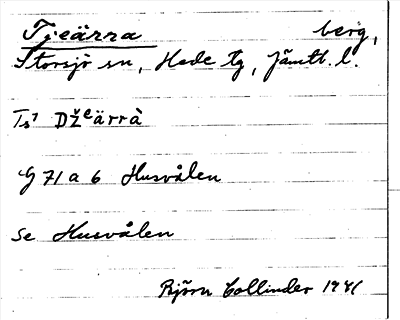 Tjeärra berg,
Storsjö sn, Hede tg, Jämtl. l.
Ts1 Džeärrà
G 71 a 6 Husvålen
Se Husvålen
Björn Collinder 1941